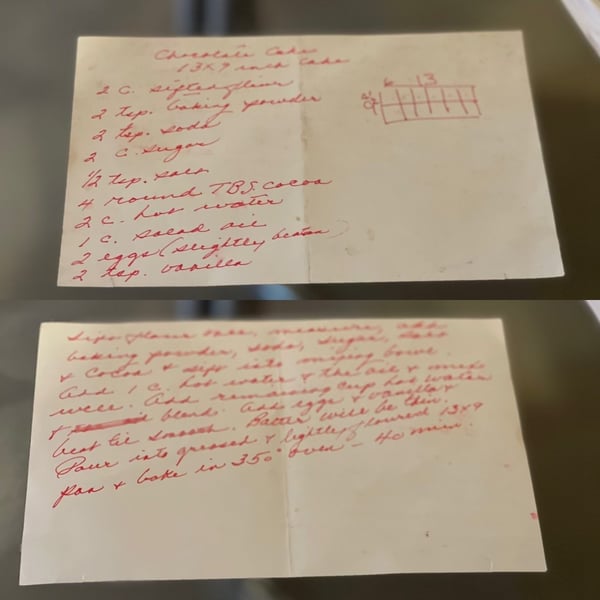 Chocolate Cake
13x9 inch Cake
2 C. sifted flour
2 tsp. baking powder
2 tsp. soda
2 C. sugar
1/2 tsp. salt
4 round TBS. cocoa
2 c. hot water
1 c. salad oil
2 eggs (slightly beaten)
2 tsp. vanilla
6 13
Sift flour once, measure, add
baking powder, soda, sugar, salt
& cocoa & sift into mixing bowl.
Add 1 c. hot water & the oil & mix
well. Add remaining cup hot water
& blend. Add eggs & vanilla &
beat til smooth. Batter will be thin.
Pour into greased & lightly floured 13x9
pan & bake in 350° oven - 40 min.